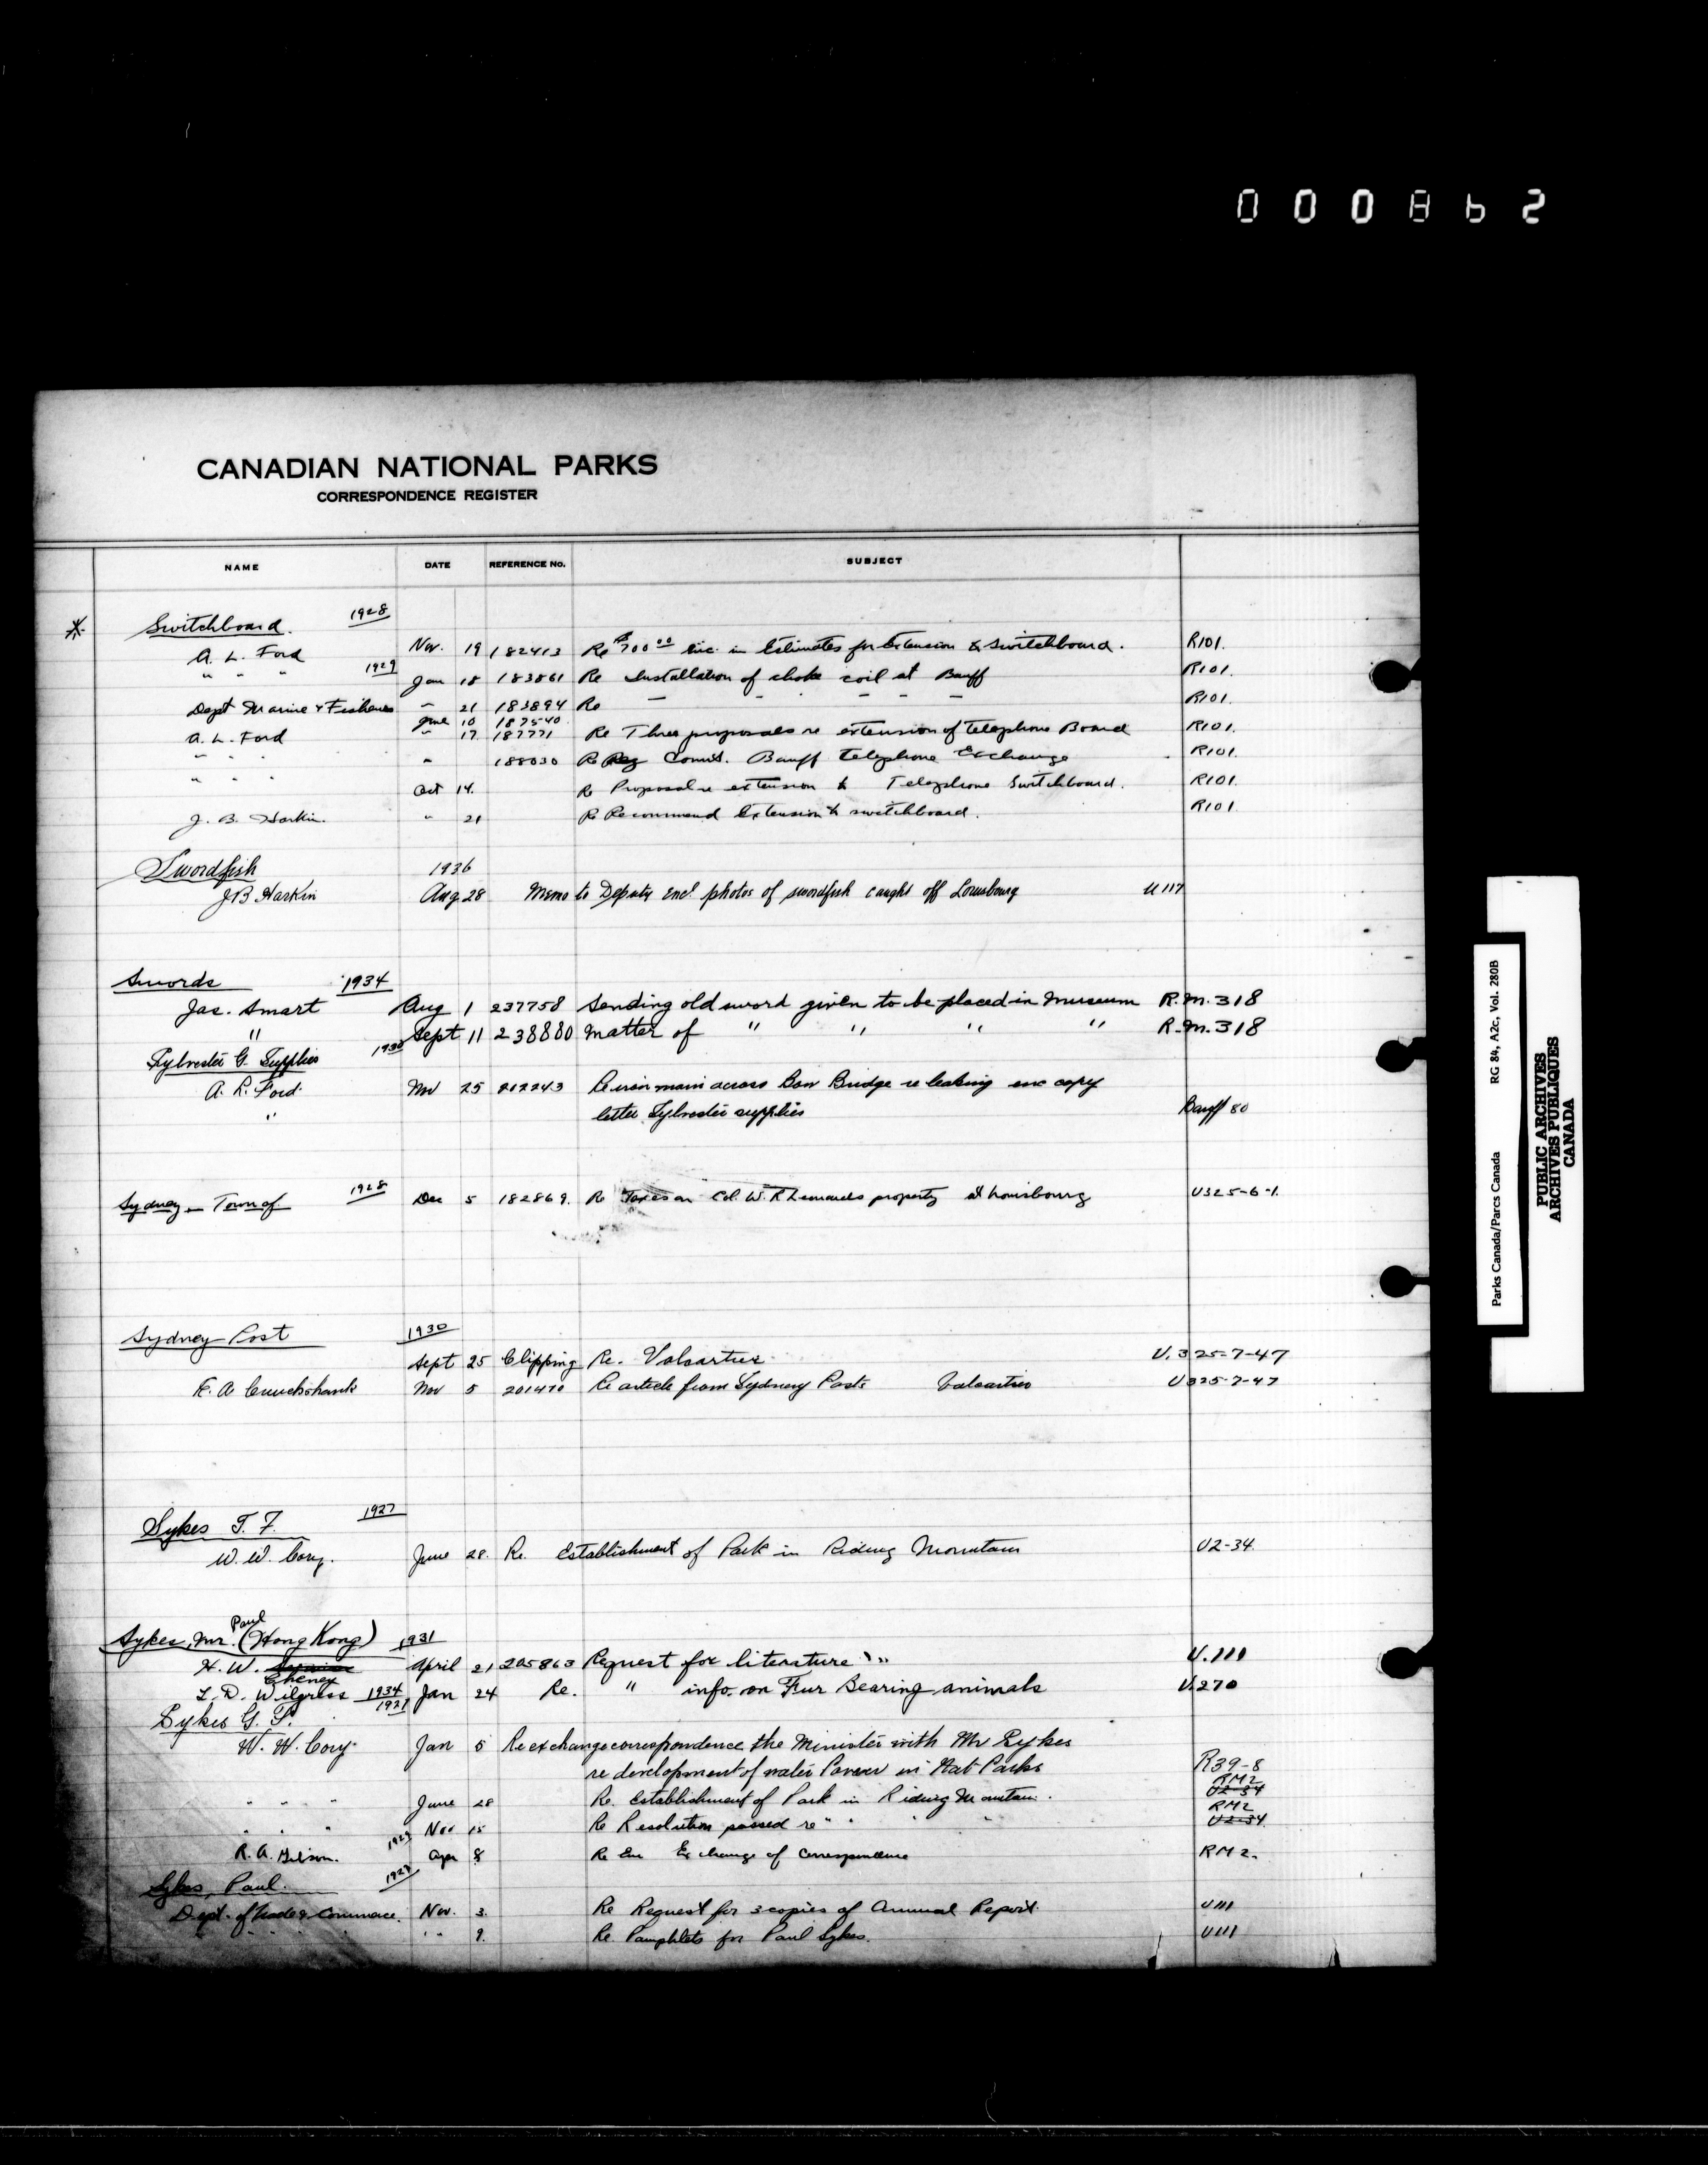 000862
CANADIAN NATIONAL PARKS
CORRESPONDENCE REGISTER
NAME DATE REFERENCE No. SUBJECT
Switchboard. 1928
A. L. Ford Nov. 19 182413 Re $700.00 inc. in Estimates for Extension to Switchboard. R101.
" " " 1929 Jan 18 183861 Re Installation of choke coil at Banff R101.
Dept Marine & Fisheries " 21 183894 Re — - - - — R101.
June 10 187540
A. L. Ford " 17. 187771 Re Three proposals re extension of telephone Board R101.
" " " " 188030 Re Comm. Banff telephone Exchange R101.
" " " Oct 14. Re Proposal re extension to Telephone Switchboard. R101.
J. B. Harkin. " 21 Re Recommend Extension to switchboard. R101
Swordfish 1936
J B Harkin Aug 28 Memo to Deputy encl photos of swordfish caught off Louisbourg U 117
Swords 1934
Jas. Smart Aug 1 237758 Sending old sword given to be placed in Museum R.M. 318
" Sept 11 238880 Matter of " " " " R.M. 318
Sylvester G. Supplies 1930
A. L. Ford. Nov 25 202243 Re iron main across Bow Bridge re leaking enc copy
" letter Sylvester supplies Banff 80
Sydney — Town of 1928 Dec 5 182869. Re Taxes on Col. W. R property at Louisbourg U325-6-1.
Sydney Post 1930
Sept 25 Clipping Re. Valcartier U.325-7-47
E. A. Cruickshank Nov 5 201470 Re article from Sydney Post Valcartier U325-7-47
Sykes T. F. 1927
W. W. Cory. June 28. Re. Establishment of Park in Riding Mountain U2-34.
Paul
Sykes, Mr. (Hong Kong) 1931
H. W. Cheney April 21 205863 Request for literature " " U.111
L. D. Wilgress 1934 Jan 24 Re. " info. on Fur Bearing animals U.270
Sykes G. T. 1921
W. W. Cory. Jan 5 Re exchange correspondence the Minister with Mr Sykes
re development of water Power in Nat Parks R39-8
" " " June 28 Re. Establishment of Park in Riding Mountain. RM2 U2-34
" " " Nov 15 Re Resolution passed re " " " RM2 U2-34
R. A. Gibson. Apr 8 Re Exchange of Correspondence RM2.
Sykes, Paul.
Dept. of Trade & Commerce. Nov. 3. Re Request for 3 copies of Annual Report. U111
" " " " " 9. Re Pamphlets for Paul Sykes. U111
Parks Canada/Parcs Canada RG 84, A2c, Vol. 280B
PUBLIC ARCHIVES
ARCHIVES PUBLIQUES
CANADA